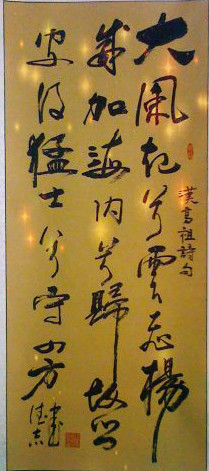 大風起兮雲飞楊
威加海内兮歸故乡
安得猛士兮守四方
漢高祖詩句